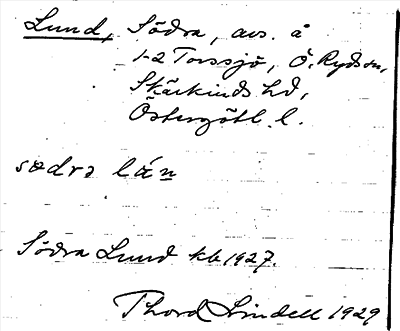 Lund, Södra, avs. å
1-2 Torssjö, Ö. Ryds sn,
Skärkinds hd,
Östergötl. l.
sødrə lán
Södra Lund kb 1927.
Thord Lindell 1929